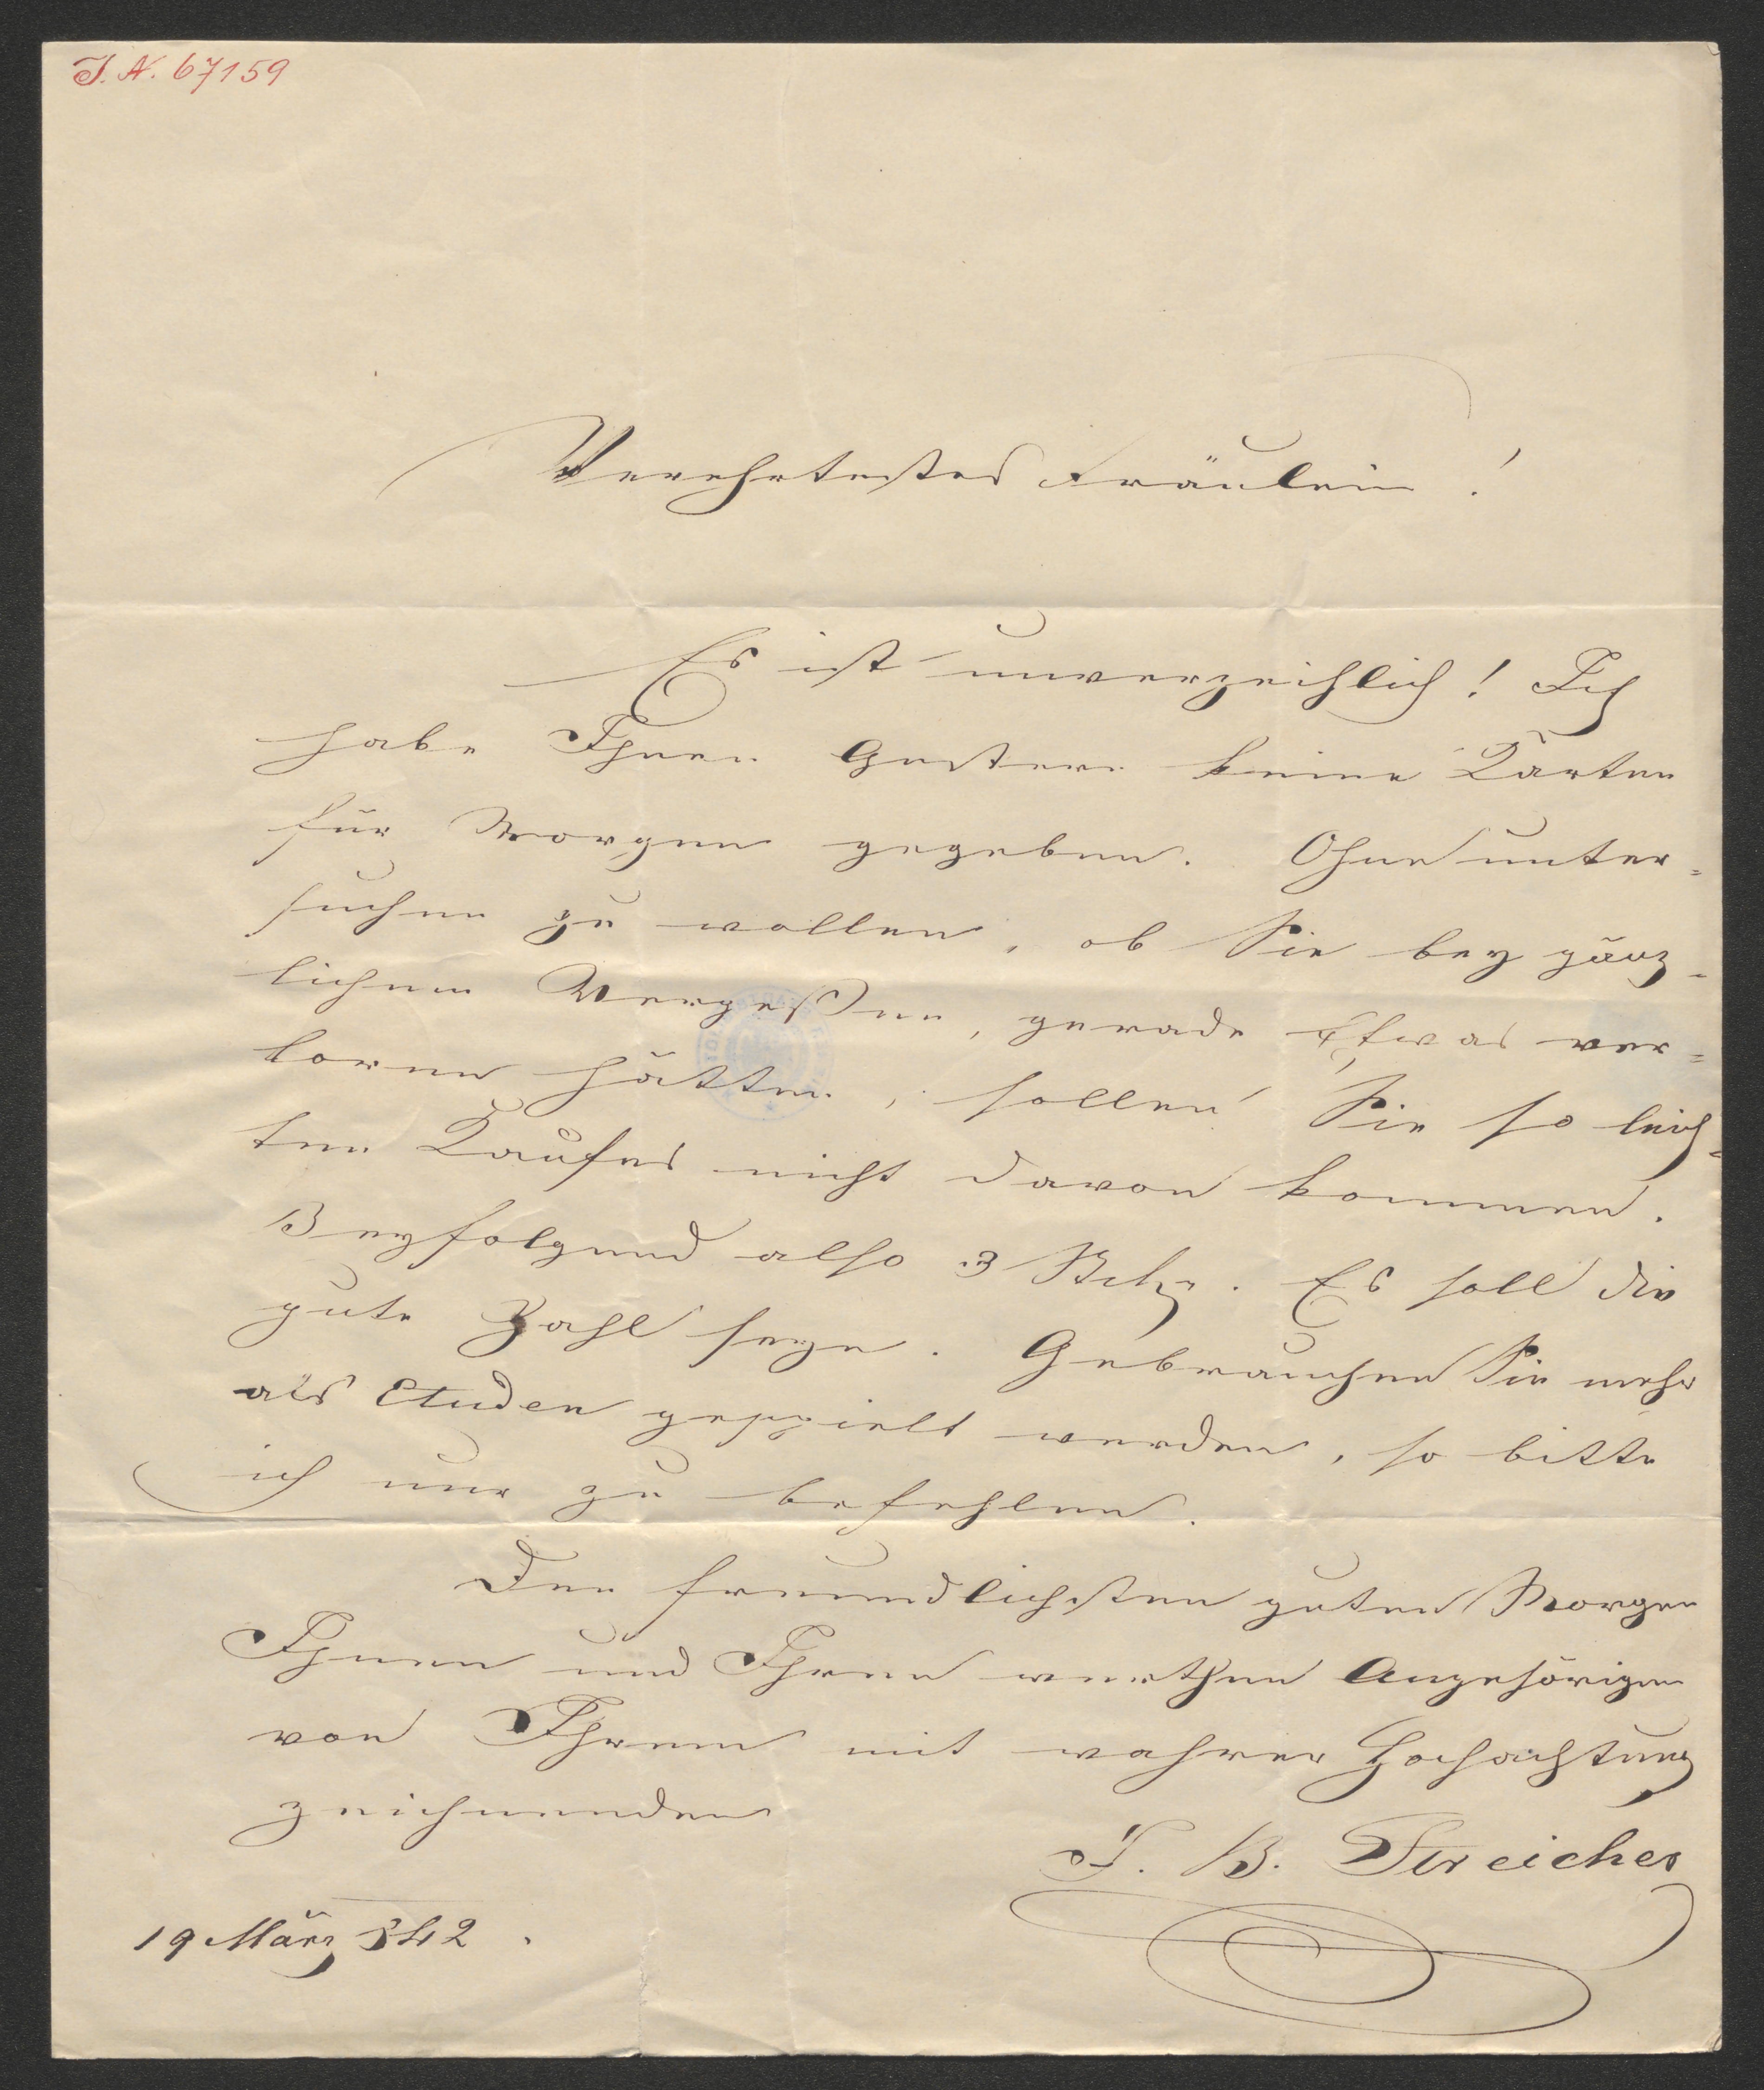 I. N. 67159
Verehrtestes Fräulein!
Es ist unverzeihlich! Ich
habe Ihnen Gestern keine Karten
für Morgen gegeben. Ohne unter=
suchen zu wollen, ob Sie bey gänz=
lichem Vergeßen, gerade Etwas ver=
loren hätten, sollen Sie so leich=
ten Kaufes nicht davon kommen.
Beyfolgend also 3 Stck. Es soll die
gute Zahl seyn. Gebrauchen Sie mehr
als Etuden gespielt werden, so bitte
ich nur zu befehlen.
Den freundlichsten guten Morgen
Ihnen und Ihren werthen Angehörigen
von Ihrem mit wahrer Hochachtung
zeichnenden
J. B. Streicher
19 März 842.